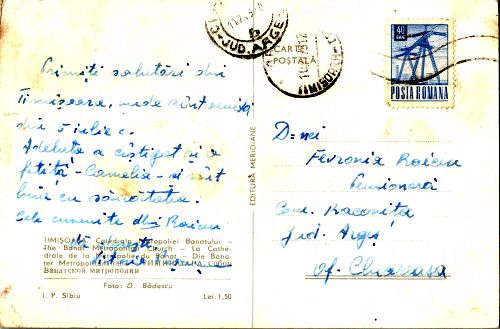 Primiți salutări din
Timișoara, unde sînt venită
din 5 iulie c.
Adeluța a cîștigat și o
fetiță - Camelia - și sînt
bine cu sănătatea.
Cele cuvenite dlui Raicu
Vă
TIMIȘOARA Catedrala Mitropoliei Banatului -
The Banat Metropolitan Church - La Cathé-
drale de la Métropolie du Banat - Die Bana-
ter Metropolitankirche ТИМИШОАРА Собор
Банатской митрополии
Foto: D. Bădescu
I. P. Sibiu Lei 1,50
EDITURA MERIDIANE
CARTE
POȘTALĂ
JUD. ARGEȘ
TIMIȘOARA
40
BANI
POSTA ROMANA
D-nei
Fevronia Raicu
Pensionară
Com. Racovița
Jud. Argeș
Of.